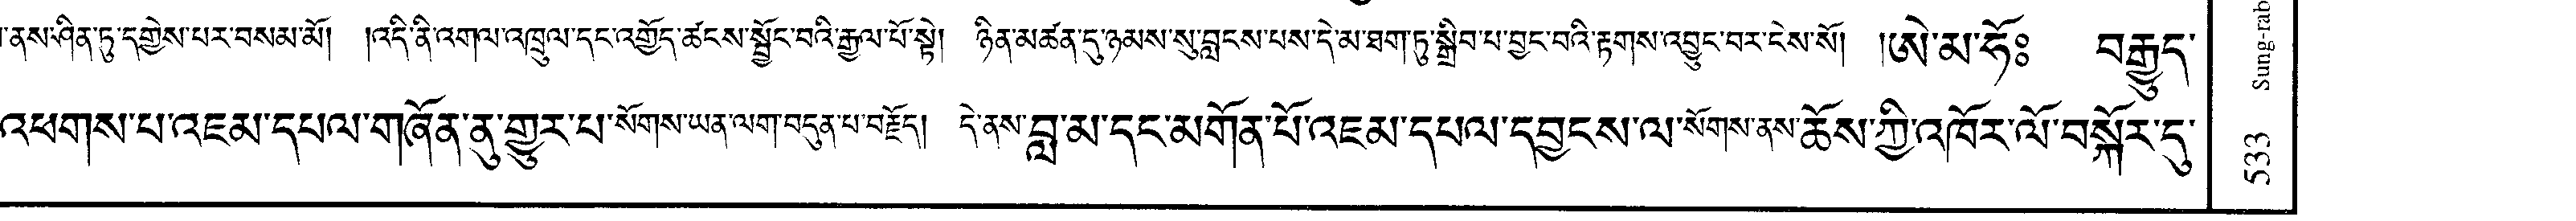 ནས་ཤིན་ཏུ་དགྱེས་པར་བསམ་མོ། །འདི་ནི་འགལ་འཁྲུལ་དང་འགྱོད་ཚངས་སྦྱོང་བའི་རྒྱལ་པོ་སྟེ། ཉིན་མཚན་དུ་ཉམས་སུ་བླངས་པས་དེ་མ་ཐག་ཏུ་སྒྲིབ་པ་བྱང་བའི་རྟགས་འབྱུང་བར་ངེས་སོ། །ཨེ་མ་ཧོཿ བརྒྱུད་
འཕགས་པ་འཇམ་དཔལ་གཞོན་ནུ་གྱུར་པ་སོགས་ཡན་ལག་བདུན་པ་བརྗོད། དེ་ནས་བླ་མ་དང་མགོན་པོ་འཇམ་དཔལ་དབྱངས་ལ་སོགས་ནས་ཆོས་ཀྱི་འཁོར་ལོ་བསྐོར་དུ་
Sung-rab
533